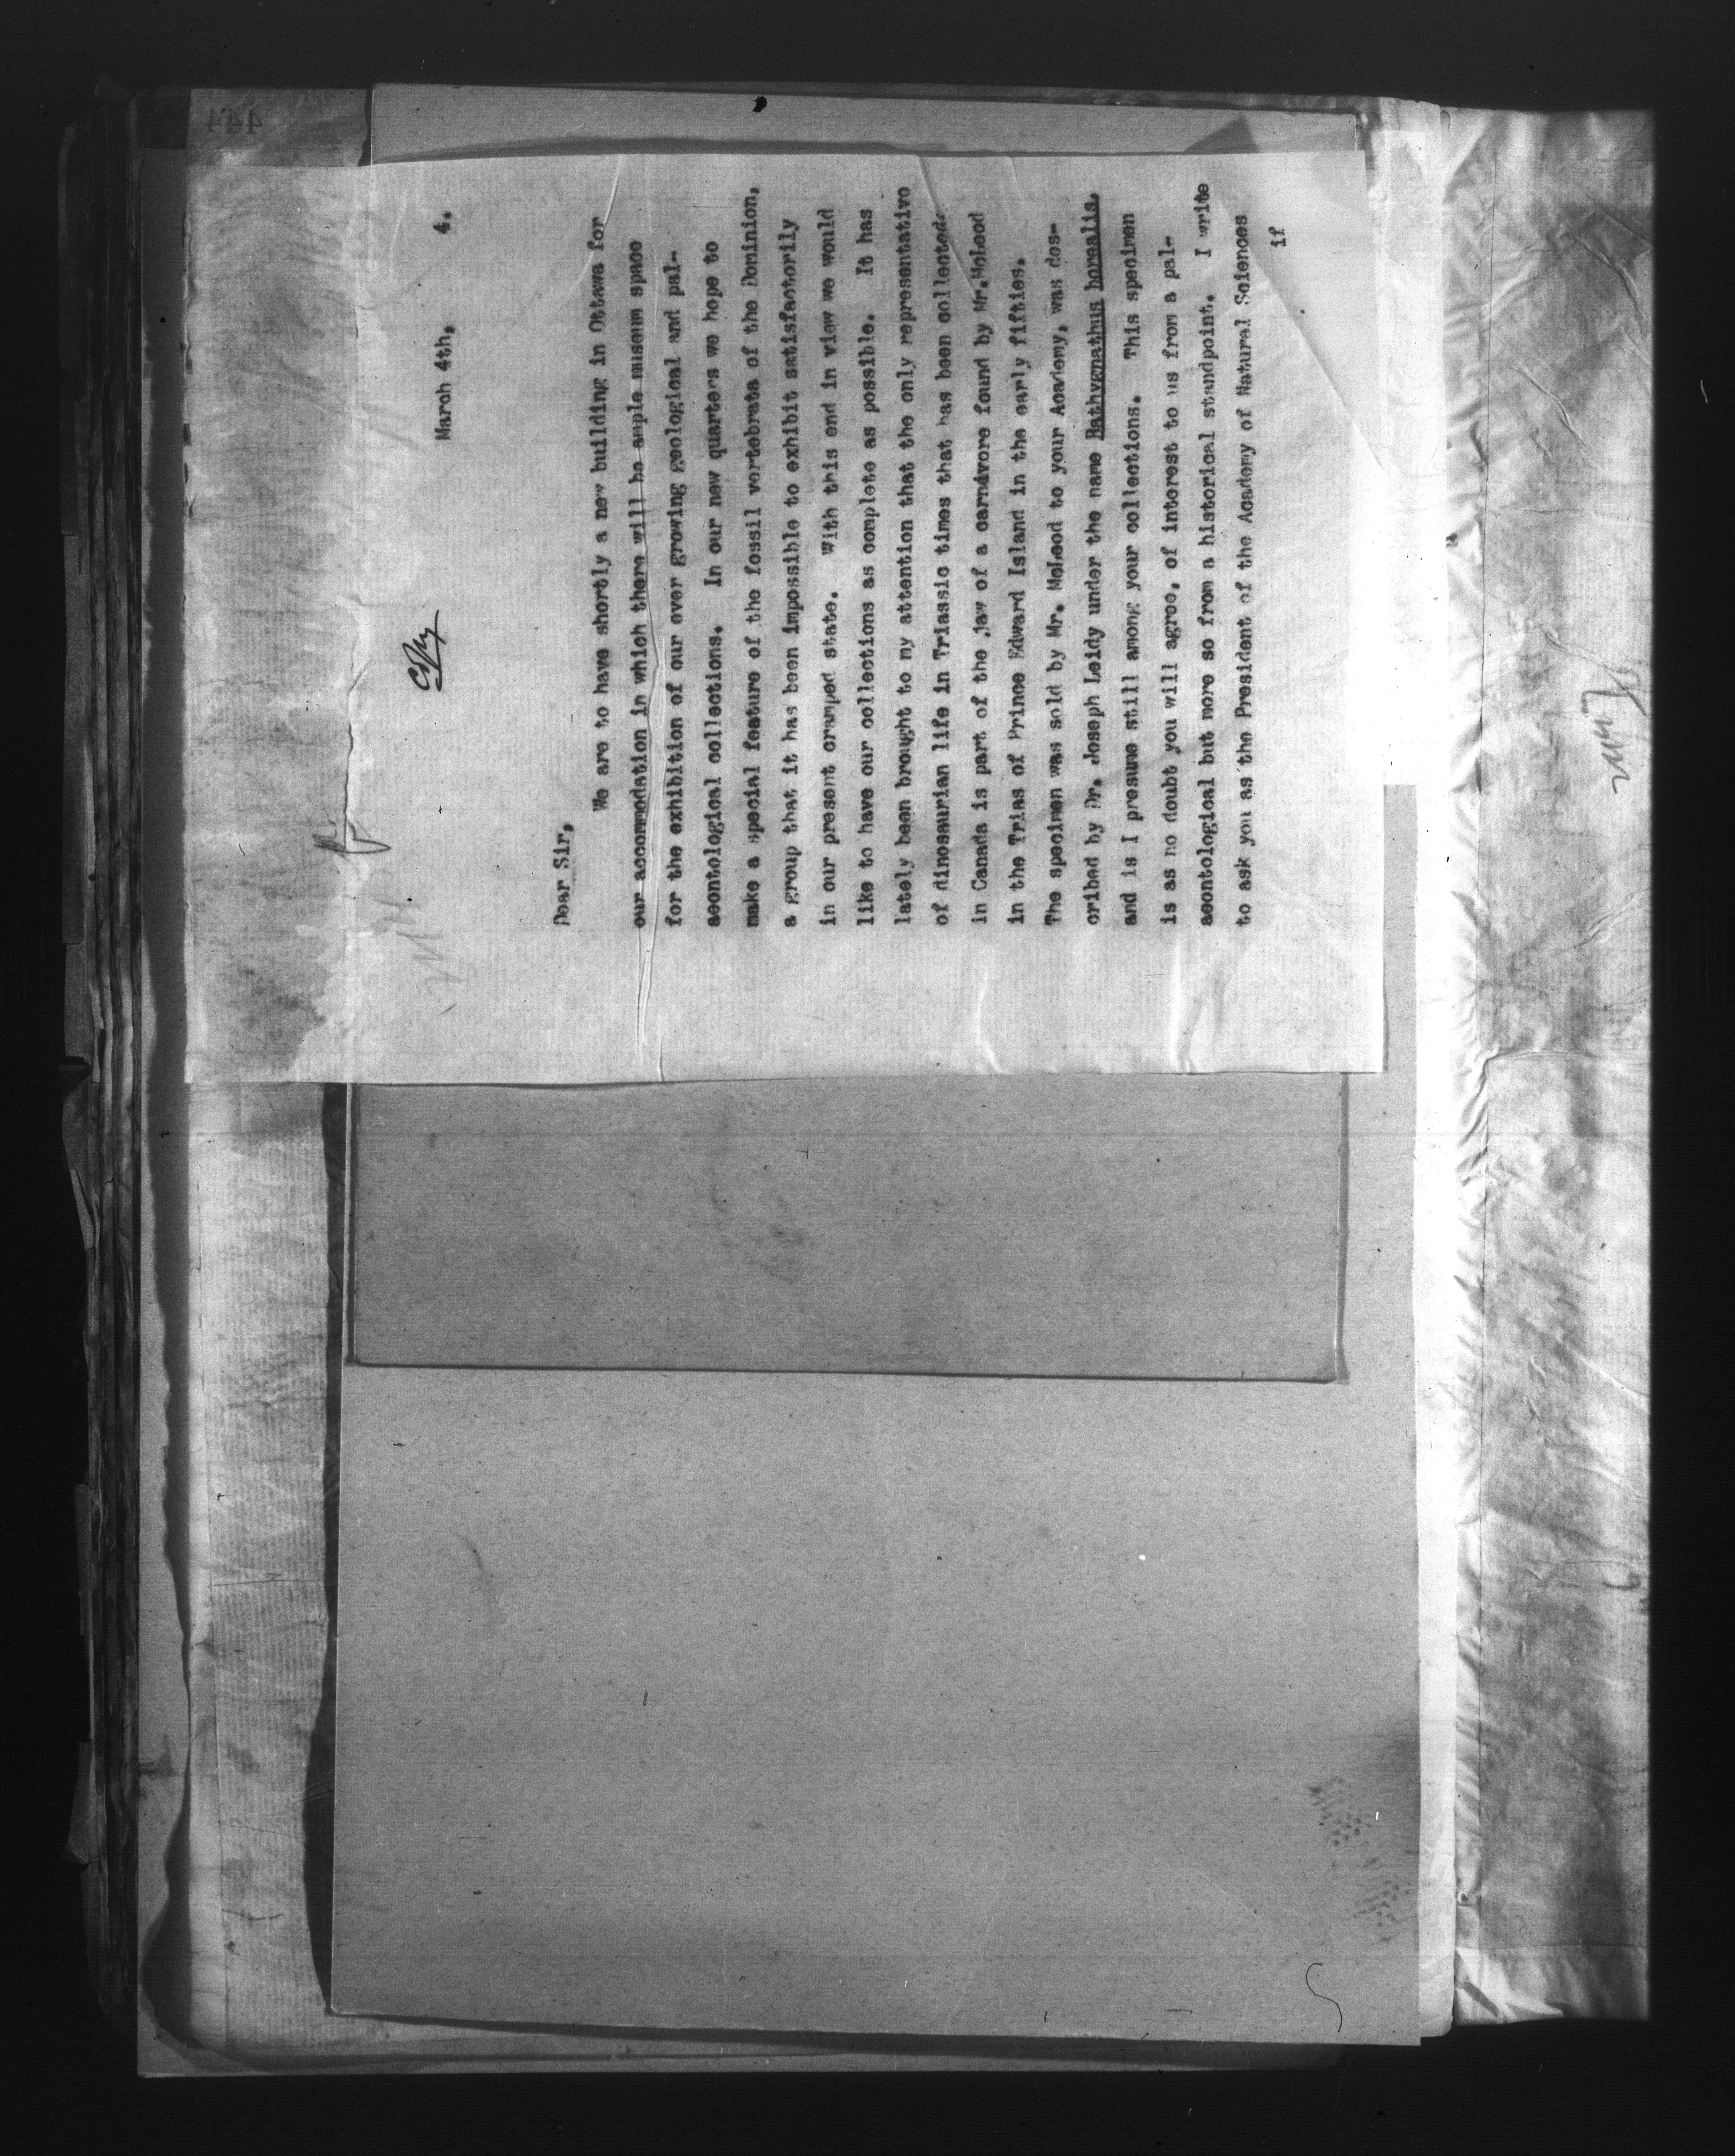 Copy
March 4th, 4.
Dear Sir,
We are to have shortly a new building in Ottawa for
our accommodation in which there will be ample museum space
for the exhibition of our ever growing geological and pal-
aeontological collections. In our new quarters we hope to
make a special feature of the fossil vertebrata of the Dominion,
a group that it has been impossible to exhibit satisfactorily
in our present cramped state. With this end in view we would
like to have our collections as complete as possible. It has
lately been brought to my attention that the only representative
of dinosaurian life in Triassic times that has been collected
in Canada is part of the jaw of a carnivore found by Mr. McLeod
in the Trias of Prince Edward Island in the early fifties.
The specimen was sold by Mr. McLeod to your Academy, was des-
cribed by Dr. Joseph Leidy under the name Bathygnathus borealis,
and is I presume still among your collections. This specimen
is as no doubt you will agree, of interest to us from a pal-
aeontological but more so from a historical standpoint. I write
to ask you as the President of the Academy of Natural Sciences
if